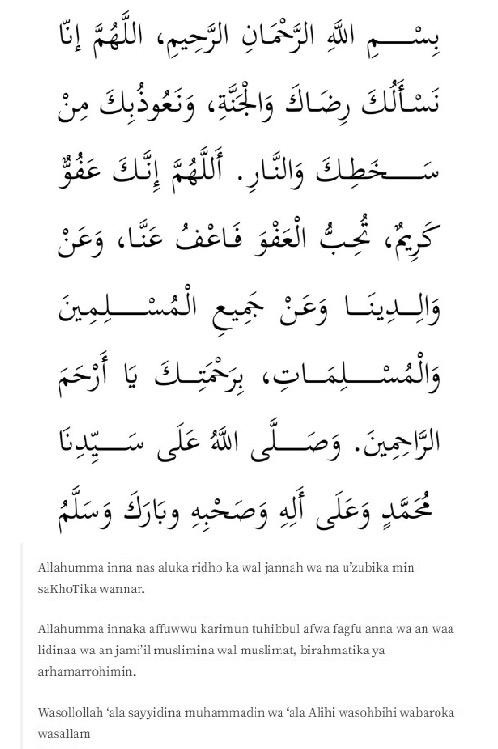 بِسْـــمِ اللَّهِ الرَّحْمَـانِ الرَّحِيمِ، اللَّهُمَّ إنّا
نَسْـأَلُكَ رِضَـاكَ وَالْجَنَّةِ، وَنَعُوذُبِكَ مِنْ
سَـــخَطِـكَ وَالنَّـارِ. أَللَّهُمَّ إِنَّـكَ عَفُوٌّ
كَرِيمٌ، تُحِـبُّ الْعَفْوَ فَـاعْفُ عَنَّـا، وَعَنْ
وَالِـــدِينَـــا وَعَـنْ جَمِيعِ الْمُسْـــلِمِينَ
وَالْمُسْـــلِمَـــاتِ، بِرَحْمَتِـــكَ يَا أَرْحَمَ
الرَّاحِمِينَ. وَصَـــلَّى اللَّهُ عَلَى سَـــيِّدِنَا
مُحَمَّدٍ وَعَلَى أَلِهِ وَصَحْبِهِ وبَارَكَ وَسَلَّمُ
Allahumma inna nas aluka ridho ka wal jannah wa na u'zubika min
saKhoTika wannar.
Allahumma innaka affuwwu karimun tuhibbul afwa fagfu anna wa an waa
lidinaa wa an jami'il muslimina wal muslimat, birahmatika ya
arhamarrohimin.
Wasollollah 'ala sayyidina muhammadin wa 'ala Alihi wasohbihi wabaroka
wasallam